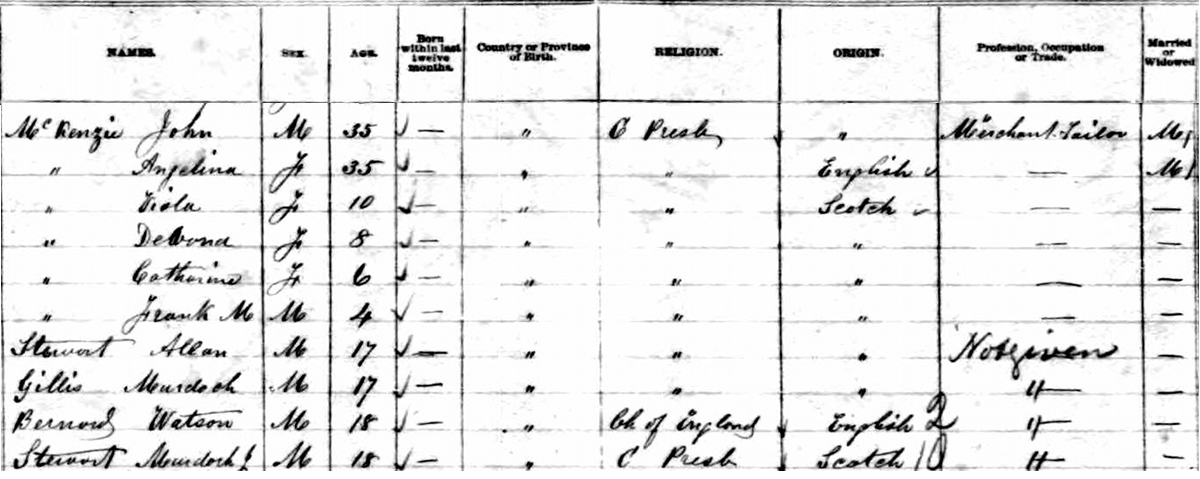 NAMES. SEX. AGE. Born within last twelve months. Country or Province of Birth. RELIGION. ORIGIN. Profession, Occupation or Trade. Married or Widowed
McKenzie John M 35 — " C Presb " Merchant Tailor M
" Angelina F 35 — " " English — M
" Viola F 10 — " " Scotch — —
" F 8 — " " " — —
" Catharine F 6 — " " " — —
" Frank M M 4 — " " " — —
Stewart Allan M 17 — " " " Not given —
Gillis Murdoch M 17 — " " " " —
Bernard Watson M 18 — " Ch of England English 2 " —
Stewart Murdoch J M 18 — " C Presb Scotch 10 " —